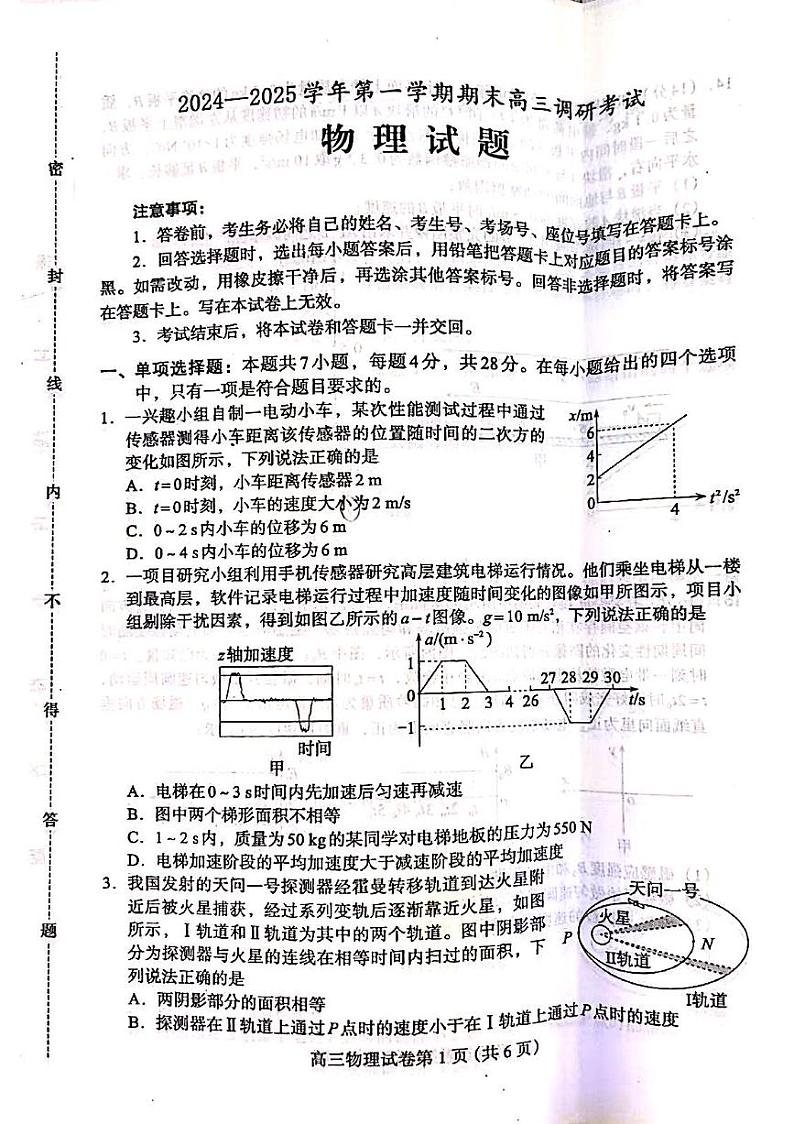 2024—2025学年第一学期期末高三调研考试
物理试题
注意事项：
1．答卷前，考生务必将自己的姓名、考生号、考场号、座位号填写在答题卡上。
2．回答选择题时，选出每小题答案后，用铅笔把答题卡上对应题目的答案标号涂
黑。如需改动，用橡皮擦干净后，再选涂其他答案标号。回答非选择题时，将答案写
在答题卡上。写在本试卷上无效。
3．考试结束后，将本试卷和答题卡一并交回。
一、单项选择题：本题共7小题，每题4分，共28分。在每小题给出的四个选项
中，只有一项是符合题目要求的。
1．一兴趣小组自制一电动小车，某次性能测试过程中通过
传感器测得小车距离该传感器的位置随时间的二次方的
变化如图所示，下列说法正确的是
A．t=0时刻，小车距离传感器2 m
B．t=0时刻，小车的速度大小为2 m/s
C．0~2 s内小车的位移为6 m
D．0~4 s内小车的位移为6 m
x/m
6
4
2
0
4
t²/s²
2．一项目研究小组利用手机传感器研究高层建筑电梯运行情况。他们乘坐电梯从一楼
到最高层，软件记录电梯运行过程中加速度随时间变化的图像如甲所图示，项目小
组剔除干扰因素，得到如图乙所示的a-t图像。g=10 m/s²，下列说法正确的是
z轴加速度
时间
甲
a/(m·s⁻²)
1
0
-1
1 2 3 4 26
27 28 29 30
t/s
乙
A．电梯在0~3 s时间内先加速后匀速再减速
B．图中两个梯形面积不相等
C．1~2 s内，质量为50 kg的某同学对电梯地板的压力为550 N
D．电梯加速阶段的平均加速度大于减速阶段的平均加速度
3．我国发射的天问一号探测器经霍曼转移轨道到达火星附
近后被火星捕获，经过系列变轨后逐渐靠近火星，如图
所示，Ⅰ轨道和Ⅱ轨道为其中的两个轨道。图中阴影部
分为探测器与火星的连线在相等时间内扫过的面积，下
列说法正确的是
A．两阴影部分的面积相等
B．探测器在Ⅱ轨道上通过P点时的速度小于在Ⅰ轨道上通过P点时的速度
天问一号
火星
P
N
Ⅱ轨道
Ⅰ轨道
高三物理试卷第1页（共6页）
密
封
线
内
不
得
答
题